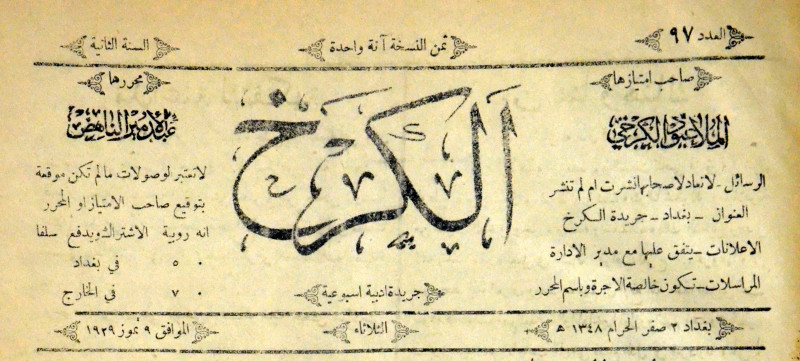 العدد ٩٧
ثمن النسخة آنة واحدة
السنة الثانية
صاحب امتيازها
الملا عبود الكرخي
الرسائل - لا تعاد لاصحابها نشرت ام لم تنشر
العنوان - بغداد - جريدة الكرخ
الاعلانات - يتفق عليها مع مدير الادارة
المراسلات - تكون خالصة الاجرة وباسم المحرر
الكرخ
جريدة ادبية اسبوعية
محررها
عبد الامير الناهض
لا تعتبر الوصولات ما لم تكن موقعة
بتوقيع صاحب الامتياز او المحرر
انه روبية الاشتراك ويدفع سلفا
٠ ٥ في بغداد
٠ ٧ في الخارج
بغداد ٢ صفر الحرام ١٣٤٨ هـ
الثلاثاء
الموافق ٩ تموز ١٩٢٩